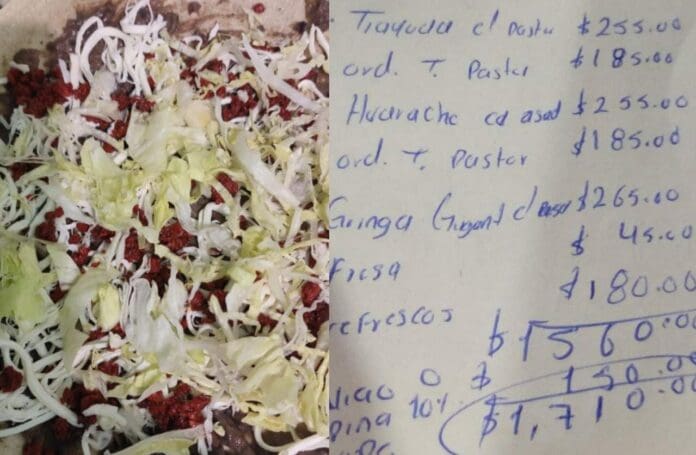 Tlayuda c/ Pastor $255.00
ord. T. Pastor $185.00
Huarache ca asad $255.00
ord. T. Pastor $185.00
Gringa Gigant c/ $265.00
Fresa $ 45.00
refrescos $180.00
$1560.00
0 $ 150.00
10% $1,710.00